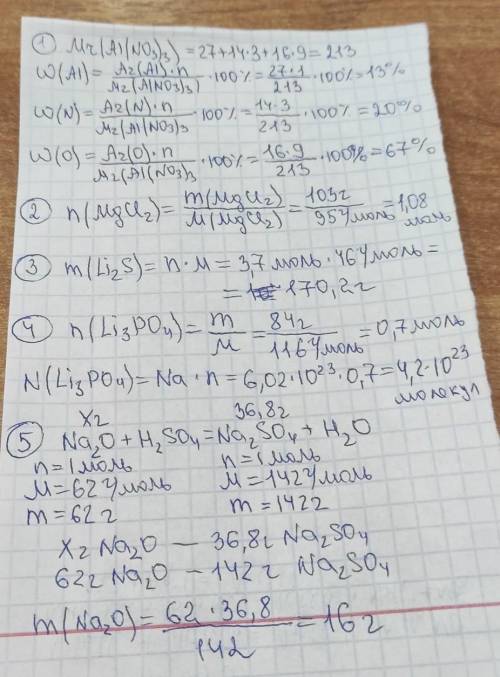 ① Mr(Al(NO₃)₃) = 27+14·3+16·9 = 213
W(Al) = Ar(Al)·n / Mr(Al(NO₃)₃ · 100% = 27·1 / 213 · 100% = 13%
W(N) = Ar(N)·n / Mr(Al(NO₃)₃ · 100% = 14·3 / 213 · 100% = 20%
W(O) = Ar(O)·n / Mr(Al(NO₃)₃ · 100% = 16·9 / 213 · 100% = 67%
② n(MgCl₂) = m(MgCl₂) / M(MgCl₂) = 103г / 95г/моль = 1,08 моль
③ m(Li₂S) = n·M = 3,7 моль · 46г/моль =
= 170,2г
④ n(Li₃PO₄) = m / M = 84г / 116г/моль = 0,7моль
N(Li₃PO₄) = Na·n = 6,02·10²³·0,7 = 4,2·10²³ молекул
xг 36,8г
⑤ Na₂O + H₂SO₄ = Na₂SO₄ + H₂O
n = 1моль n = 1моль
M = 62г/моль M = 142г/моль
m = 62г m = 142г
xг Na₂O — 36,8г Na₂SO₄
62г Na₂O — 142г Na₂SO₄
m(Na₂O) = 62·36,8 / 142 = 16г